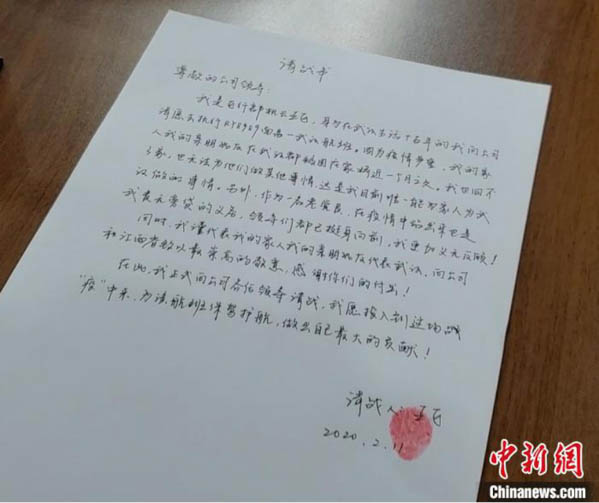 请战书
尊敬的公司领导:
我是飞行部机长王飞,身为在武汉生活十五年的我向公司
请愿去执行RY8969南昌—武汉航班。因为疫情严重,我的家
人我的亲朋好友在武汉都被困在家将近一个月之久。我也回不
了家,也无法为他们做其他事情,这是我目前唯一能为家人为武
汉做的事情。另外,作为一名老党员,在疫情中
我责无旁贷的义务,领导们都已挺身向前,我更加义无反顾!
同时,我谨代表我的家人我的亲朋好友代表武汉,向公司
和江西省致以最崇高的敬意,感谢你们的付出!
在此,我正式向公司各位领导请战,我愿投入到这场战
“疫”中来,为该航班保驾护航,做出自己最大的贡献!
请战人:王飞
2020.2.11
中新网
Chinanews.com